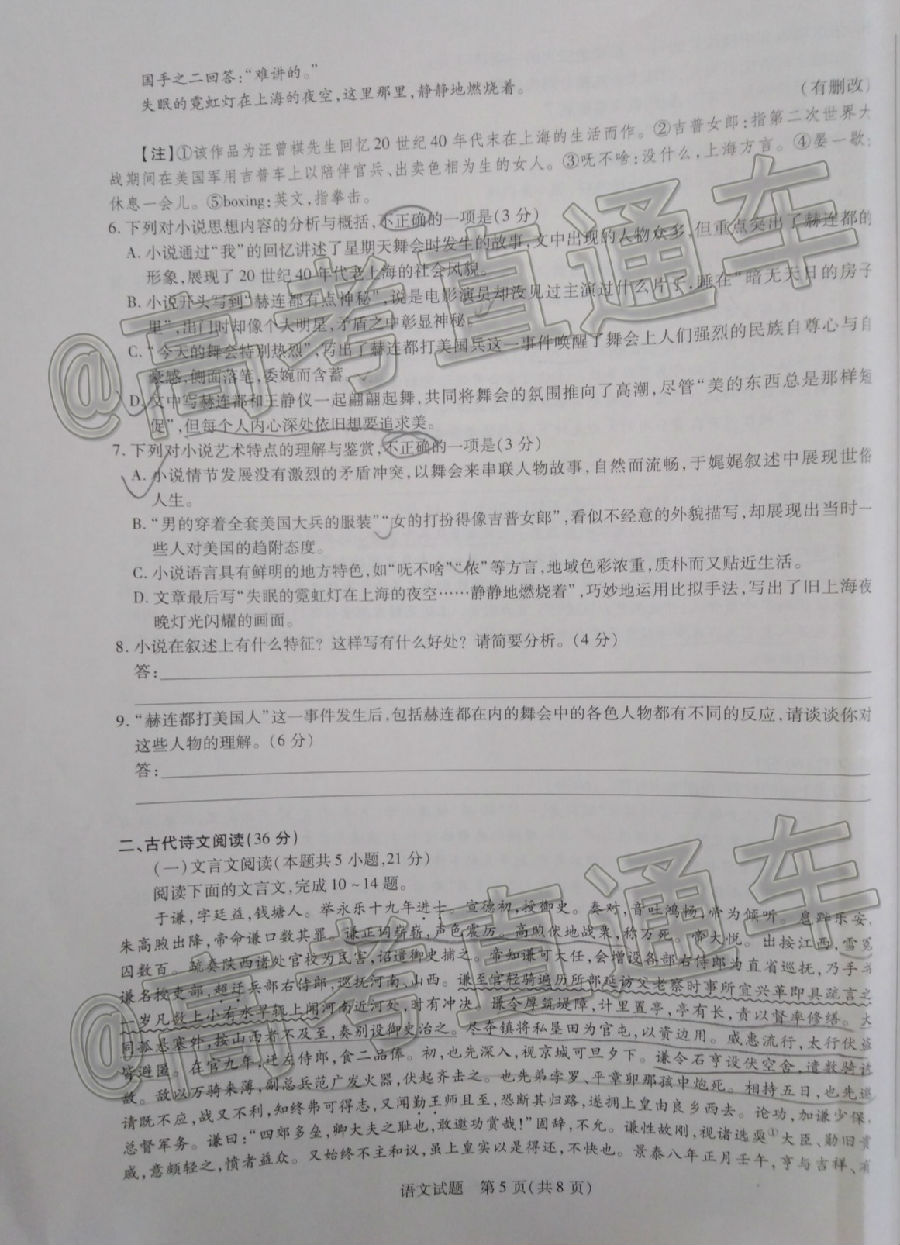 国手之二回答:“难讲的。”
失眠的霓虹灯在上海的夜空,这里那里,静静地燃烧着。
(有删改)
【注】①该作品为汪曾祺先生回忆20世纪40年代末在上海的生活而作。②吉普女郎:指第二次世界大
战期间在美国军用吉普车上以陪伴官兵、出卖色相为生的女人。③呒不啥:没什么,上海方言。④晏一歇:
休息一会儿。⑤boxing:英文,指拳击。
6.下列对小说思想内容的分析与概括,不正确的一项是(3分)
A.小说通过“我”的回忆讲述了星期天舞会时发生的故事,文中出现的人物众多,但重点突出了赫连都的
形象,展现了20世纪40年代老上海的社会风貌。
B.小说开头写到“赫连都有点神秘”,说是电影演员却没见过主演过什么片子,睡在“暗无天日的房子
里”,出门时却像个大明星,矛盾之中彰显神秘。
C.“今天的舞会特别热烈”,写出了赫连都打美国兵这一事件唤醒了舞会上人们强烈的民族自尊心与自
豪感,侧面落笔,委婉而含蓄。
D.文中写赫连都和王静仪一起翩翩起舞,共同将舞会的氛围推向了高潮,尽管“美的东西总是那样短
促”,但每个人内心深处依旧想要追求美。
7.下列对小说艺术特点的理解与鉴赏,不正确的一项是(3分)
A.小说情节发展没有激烈的矛盾冲突,以舞会来串联人物故事,自然而流畅,于娓娓叙述中展现世俗
人生。
B.“男的穿着全套美国大兵的服装”“女的打扮得像吉普女郎”,看似不经意的外貌描写,却展现出当时一
些人对美国的趋附态度。
C.小说语言具有鲜明的地方特色,如“呒不啥”“侬”等方言,地域色彩浓重,质朴而又贴近生活。
D.文章最后写“失眠的霓虹灯在上海的夜空……静静地燃烧着”,巧妙地运用比拟手法,写出了旧上海夜
晚灯光闪耀的画面。
8.小说在叙述上有什么特征?这样写有什么好处?请简要分析。(4分)
答:
9.“赫连都打美国人”这一事件发生后,包括赫连都在内的舞会中的各色人物都有不同的反应,请谈谈你对
这些人物的理解。(6分)
答:
二、古代诗文阅读(36分)
(一)文言文阅读(本题共5小题,21分)
阅读下面的文言文,完成10~14题。
于谦,字廷益,钱塘人。举永乐十九年进士。宣德初,授御史。奏对,音吐鸿畅,帝为倾听。扈跸乐安,
朱高煦出降,帝命谦口数其罪。谦正词崭崭,声色震厉。高煦伏地战栗,称万死。帝大悦。出按江西,雪冤
囚数百。疏奏陕西诸处官校为民害,诏遣御史捕之。帝知谦可大任,会增设各部右侍郎为直省巡抚,乃手书
谦名授吏部,超迁兵部右侍郎,巡抚河南、山西。谦至官轻骑遍历所部延访父老察时事所宜兴革即具疏言之
一岁凡数上小有水旱辄上闻河南近河处,时有冲决。谦令厚筑堤障,计里置亭,亭有长,责以督率修缮。大
同孤悬塞外,按山西者不及至,奏别设御史治之。尽夺镇将私垦田为官屯,以资边用。威惠流行,太行伏盗
皆避匿。在官九年,迁左侍郎,食二品俸。初,也先深入,视京城可旦夕下。谦令石亨设伏空舍,遣数骑诱
敌。敌以万骑来薄,副总兵范广发火器,伏起齐击之。也先弟孛罗、平章卯那孩中炮死。相持五日,也先邀
请既不应,战又不利,知终弗可得志,又闻勤王师且至,恐断其归路,遂拥上皇由良乡西去。论功,加谦少保,
总督军务。谦曰:“四郊多垒,卿大夫之耻也,敢邀功赏哉!”固辞,不允。谦性故刚,视诸选耎①大臣、勋旧贵
戚,意颇轻之,愤者益众。又始终不主和议,虽上皇实以是得还,不快也。景泰八年正月壬午,亨与吉祥、有
语文试题 第5页(共8页)
@高考直通车
@高考直通车